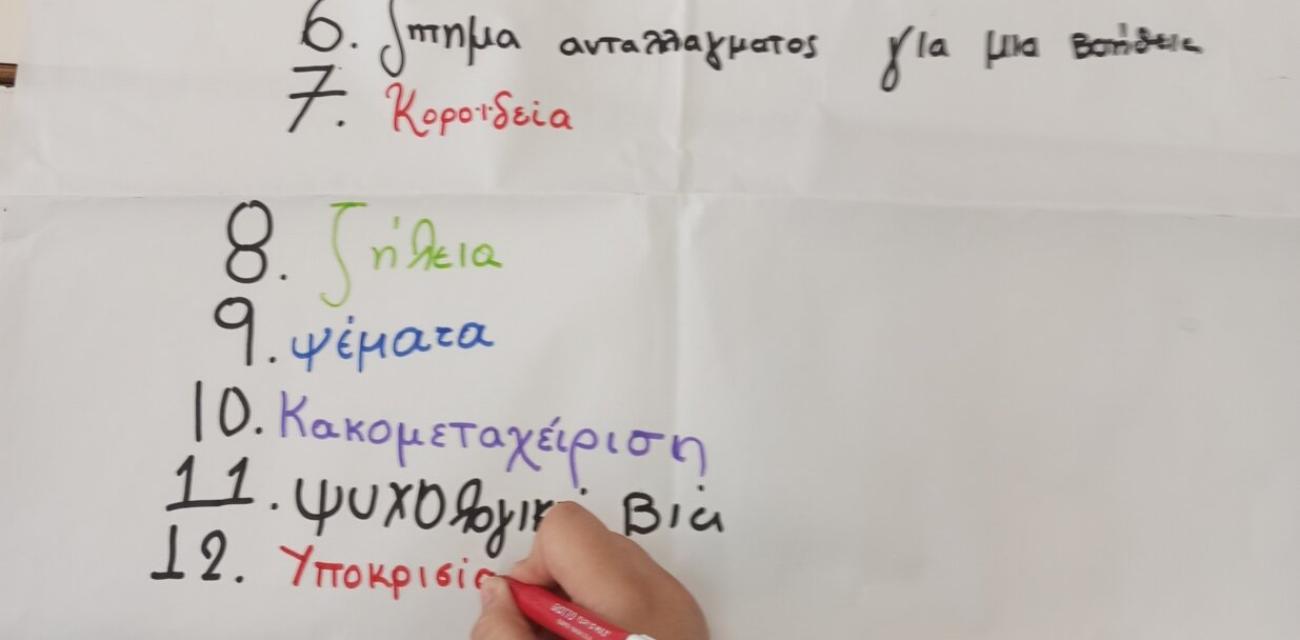 6. ζητημα ανταλλαγματος για μια
7. Κοροιδεία
8. ζήλεια
9. ψέματα
10. Κακομεταχείριση
11. ψυχολογική Βία
12. Υποκρισία